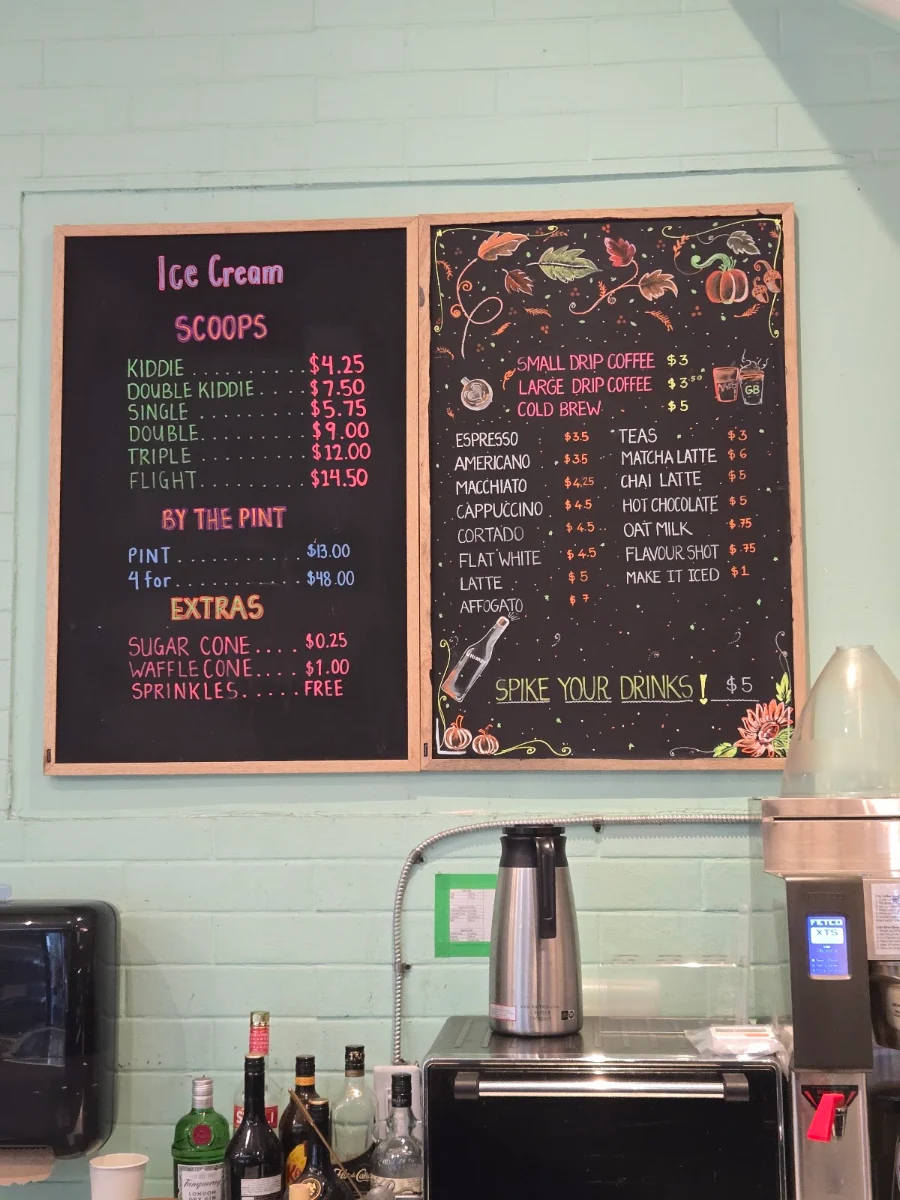 Ice Cream
SCOOPS
KIDDIE .......... $4.25
DOUBLE KIDDIE .... $7.50
SINGLE .......... $5.75
DOUBLE .......... $9.00
TRIPLE .......... $12.00
FLIGHT .......... $14.50
BY THE PINT
PINT ............ $13.00
4 for ............ $48.00
EXTRAS
SUGAR CONE .... $0.25
WAFFLE CONE .... $1.00
SPRINKLES ..... FREE
SMALL DRIP COFFEE $3
LARGE DRIP COFFEE $3.50
COLD BREW $5
GB
ESPRESSO $3.5
AMERICANO $3.5
MACCHIATO $4.25
CAPPUCCINO $4.5
CORTADO $4.5
FLAT WHITE $4.5
LATTE $5
AFFOGATO $7
TEAS $3
MATCHA LATTE $6
CHAI LATTE $5
HOT CHOCOLATE $5
OAT MILK $.75
FLAVOUR SHOT $.75
MAKE IT ICED $1
SPIKE YOUR DRINKS! $5
FETCO
XTS
Tanqueray
LONDON
DRY GIN